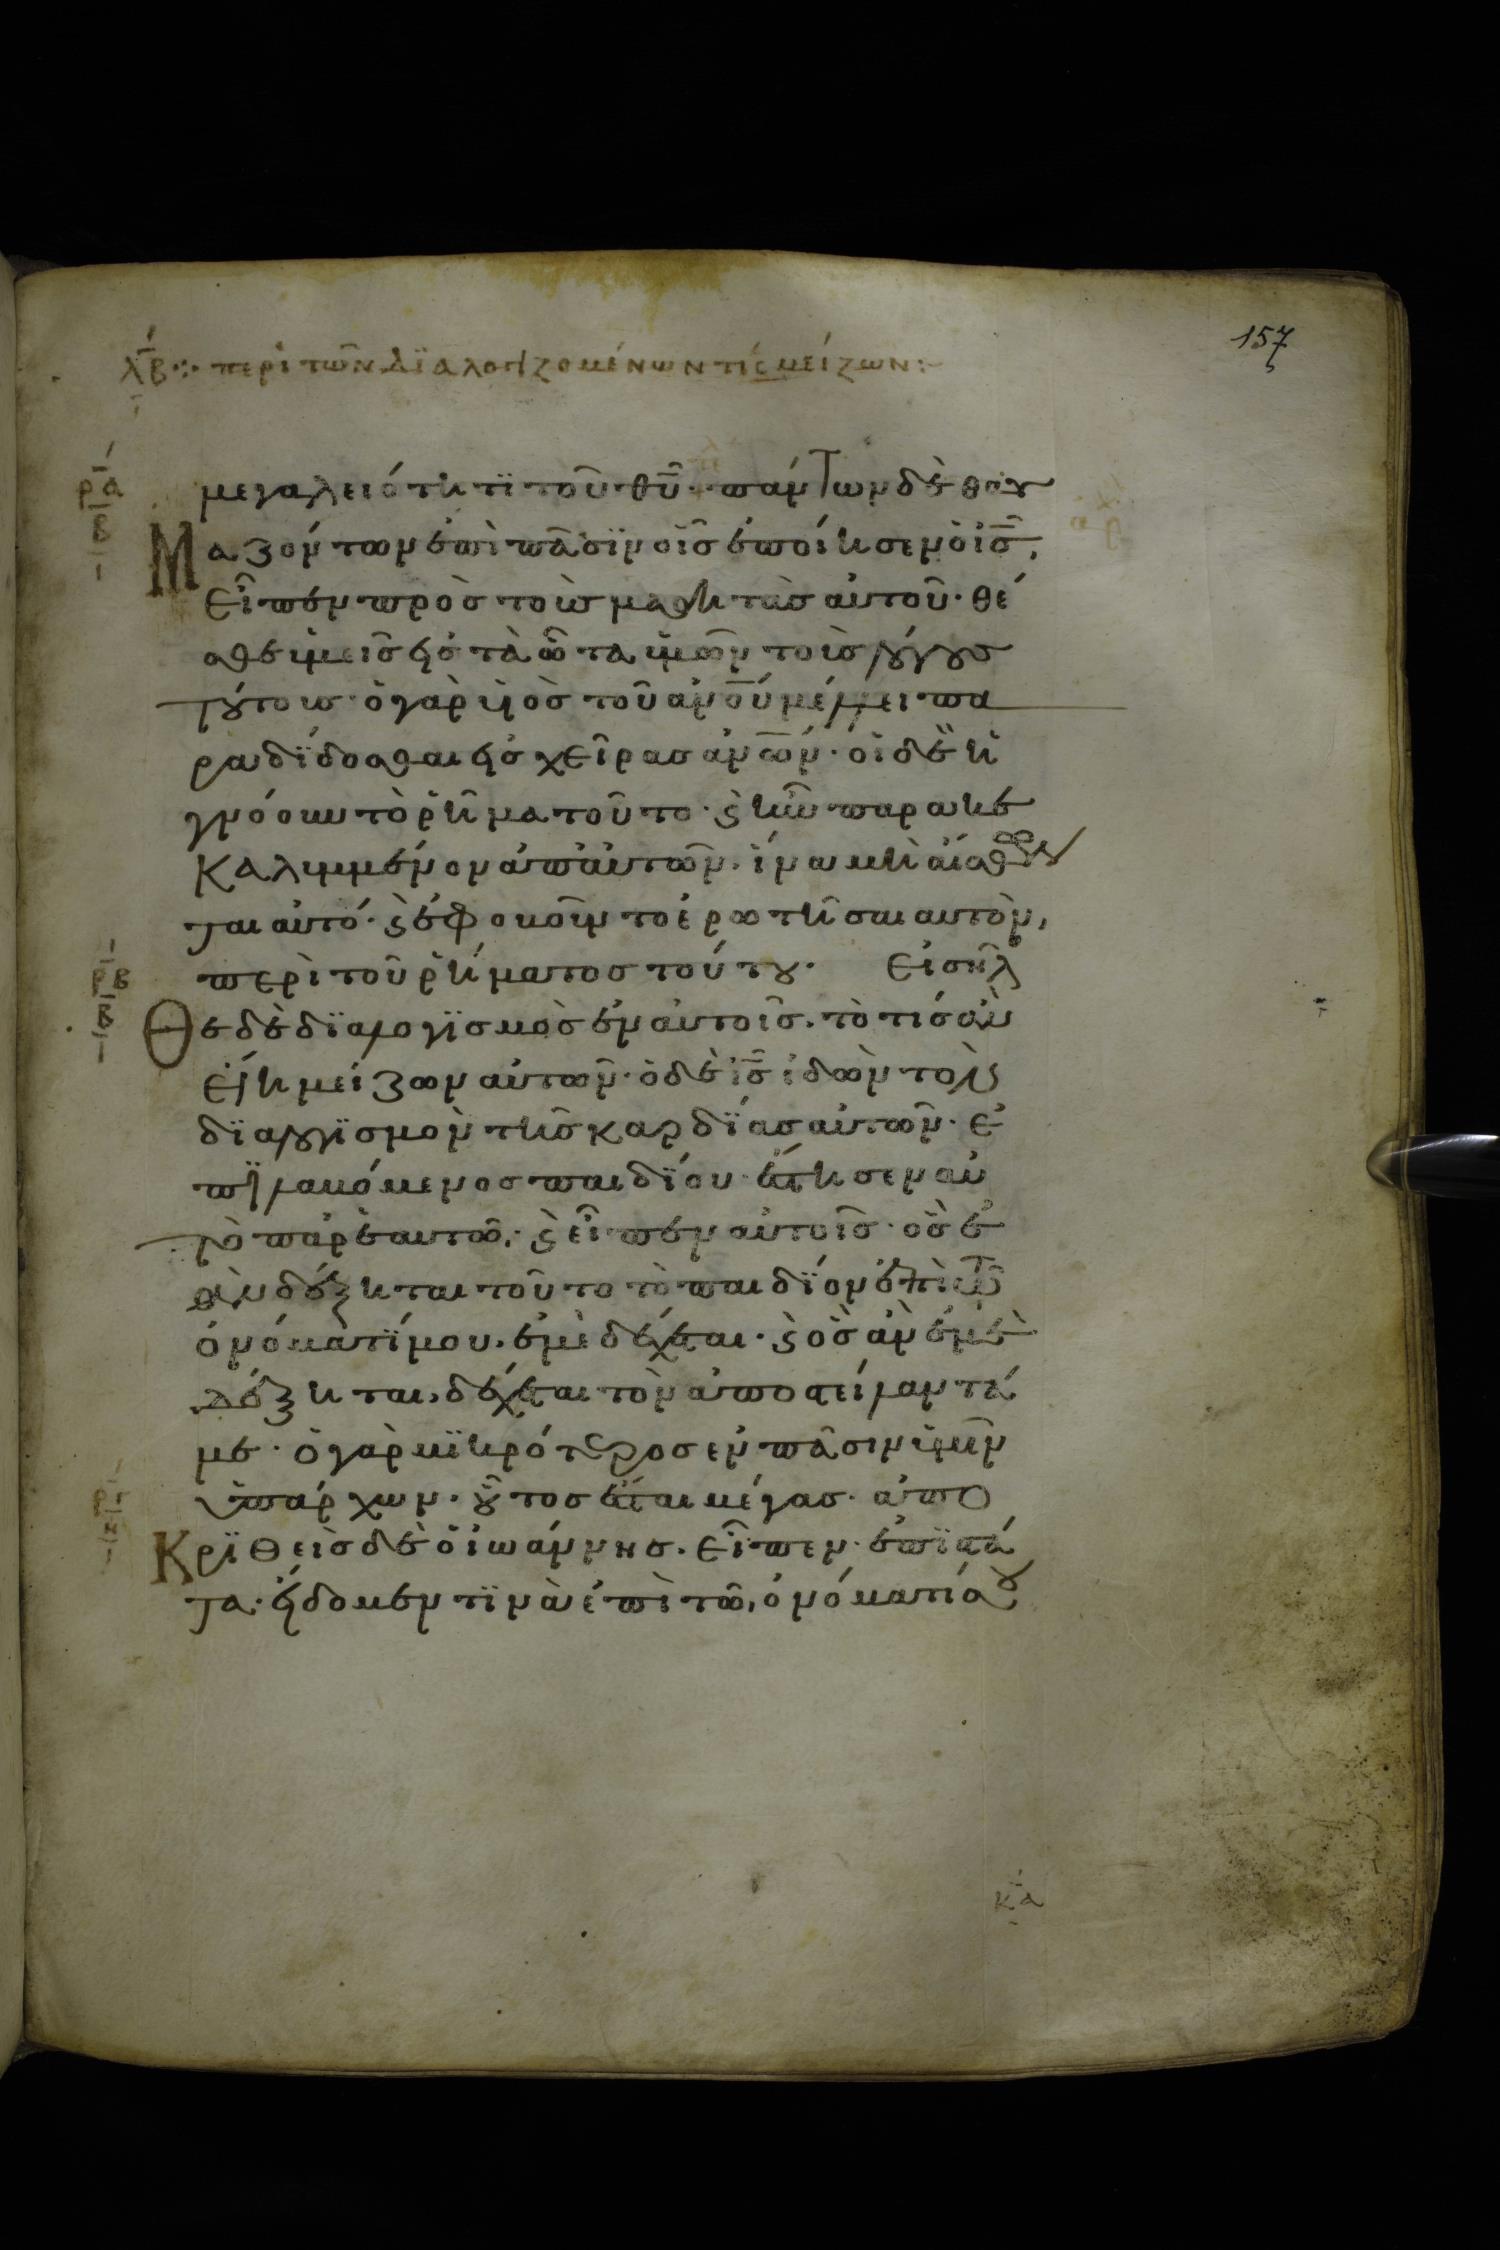 157
λβ ·:· περὶ τῶν διαλογιζομένων τίς μείζων :~
ρα
β
μεγαλειότητι τοῦ θῦ· πάντων δὲ θαυ
Μαζόντων ἐπὶ πᾶσϊν οἷς ἐποίησεν ὁ ις,
εἶπεν πρὸς τοὺς μαθητὰς αὐτοῦ· θέ
σθε ὑμεῖς εἰς τὰ ὦτα ὑμῶν τοὺς λόγους
τούτους· ὁ γὰρ υἱὸς τοῦ ανου μέλλει πα
ραδϊδοσθαι εἰς χεῖρας ανων· οἱ δὲ ἠ
γνόουν τὸ ῥῆμα τοῦτο· ϗ ἦν παρακε
Καλυμμένον ἀπ αὐτῶν· ἵνα μὴ αἴσθων
ται αὐτό· ϗ ἐφοβοῦντο ἐρωτῆσαι αὐτὸν,
περὶ τοῦ ῥήματος τούτου· Εἰσῆλ
ρβ
β
Θε δὲ δϊαλογϊσμὸς ἐν αὐτοῖς· τὸ τίς ἂν
εἴη μείζων αὐτῶν· ὁ δὲ ις ἰδὼν τὸν
δϊαλογϊσμὸν τῆς καρδϊας αὐτῶν· ἐ
πϊλαβόμενος παιδϊου ἔστησεν αὐ
τὸ παρ ἑαυτῶ, ϗ εἶπεν αὐτοῖς· ὃς ἐ
ὰν δέξηται τοῦτο τὸ παιδϊον ἐπὶ τῶ
ὀνόματϊ μου· ἐμὲ δέχεται· ϗ ὃς ἂν ἐμὲ
δέξηται, δέχεται τὸν ἀποστείλαντά
με· ὁ γὰρ μϊκρότερος ἐν πᾶσιν ὑμῖν
ὑπάρχων· οὗτος ἔσται μέγας· ἀπο
Κρϊθεὶς δὲ ὁ ἰωάννης· εἶπεν· ἐπϊστά
τα· εἴδομέν τϊνα ἐπὶ τῶ, ὀνόματί σου
κα